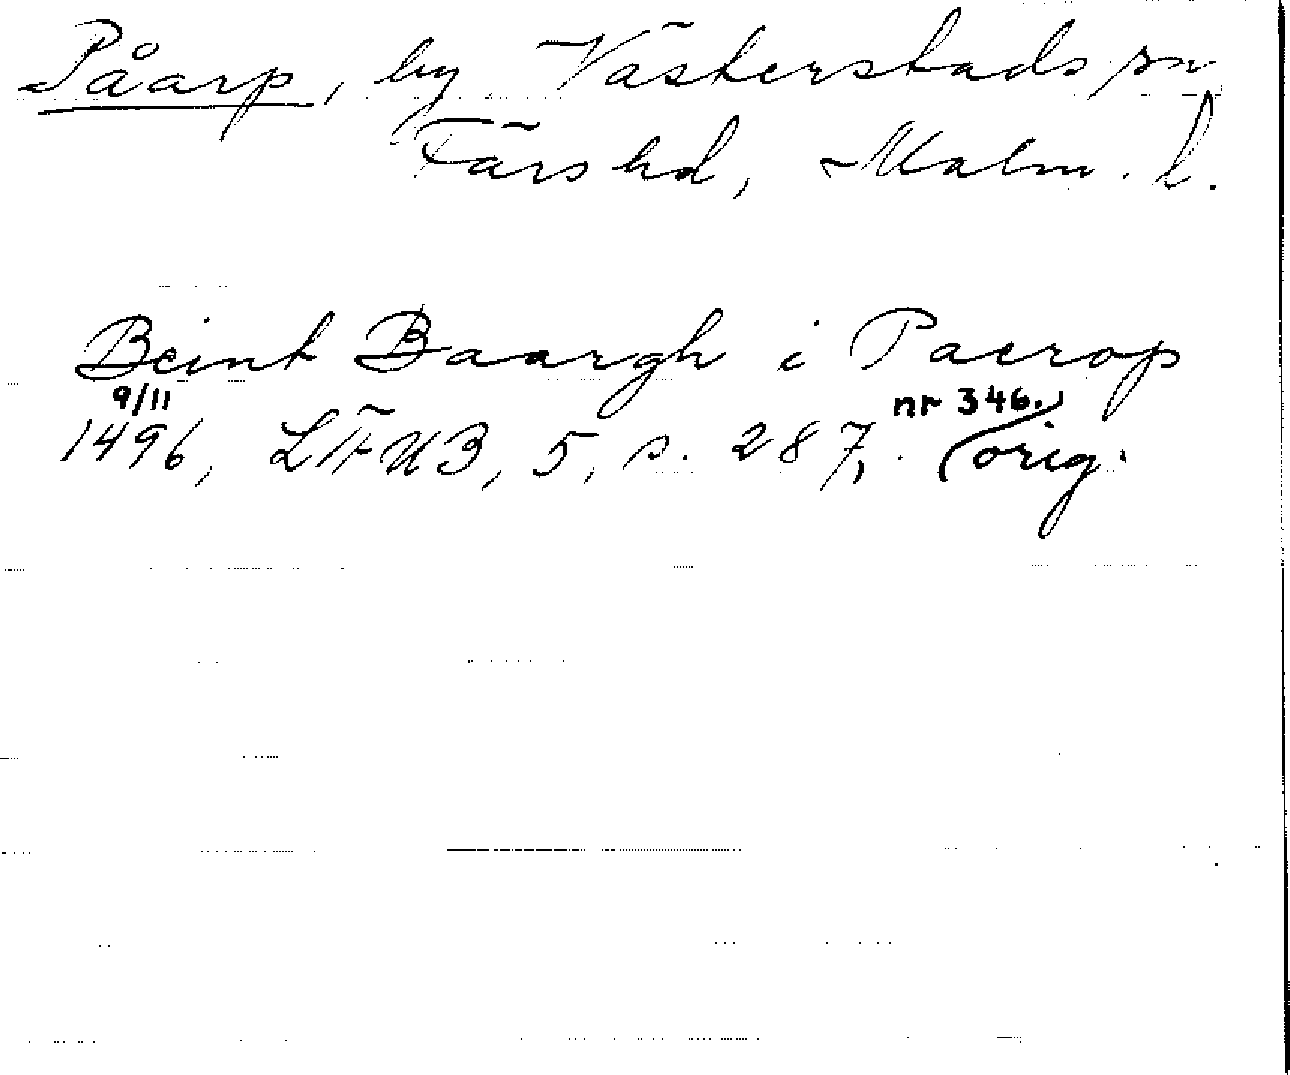 Påarp, by Västerstads sn
Färs hd, Malm. l.
Beint Baargh i Paerop
9/11 nr 346.
1496, LÄUB, 5, s. 287, (orig.